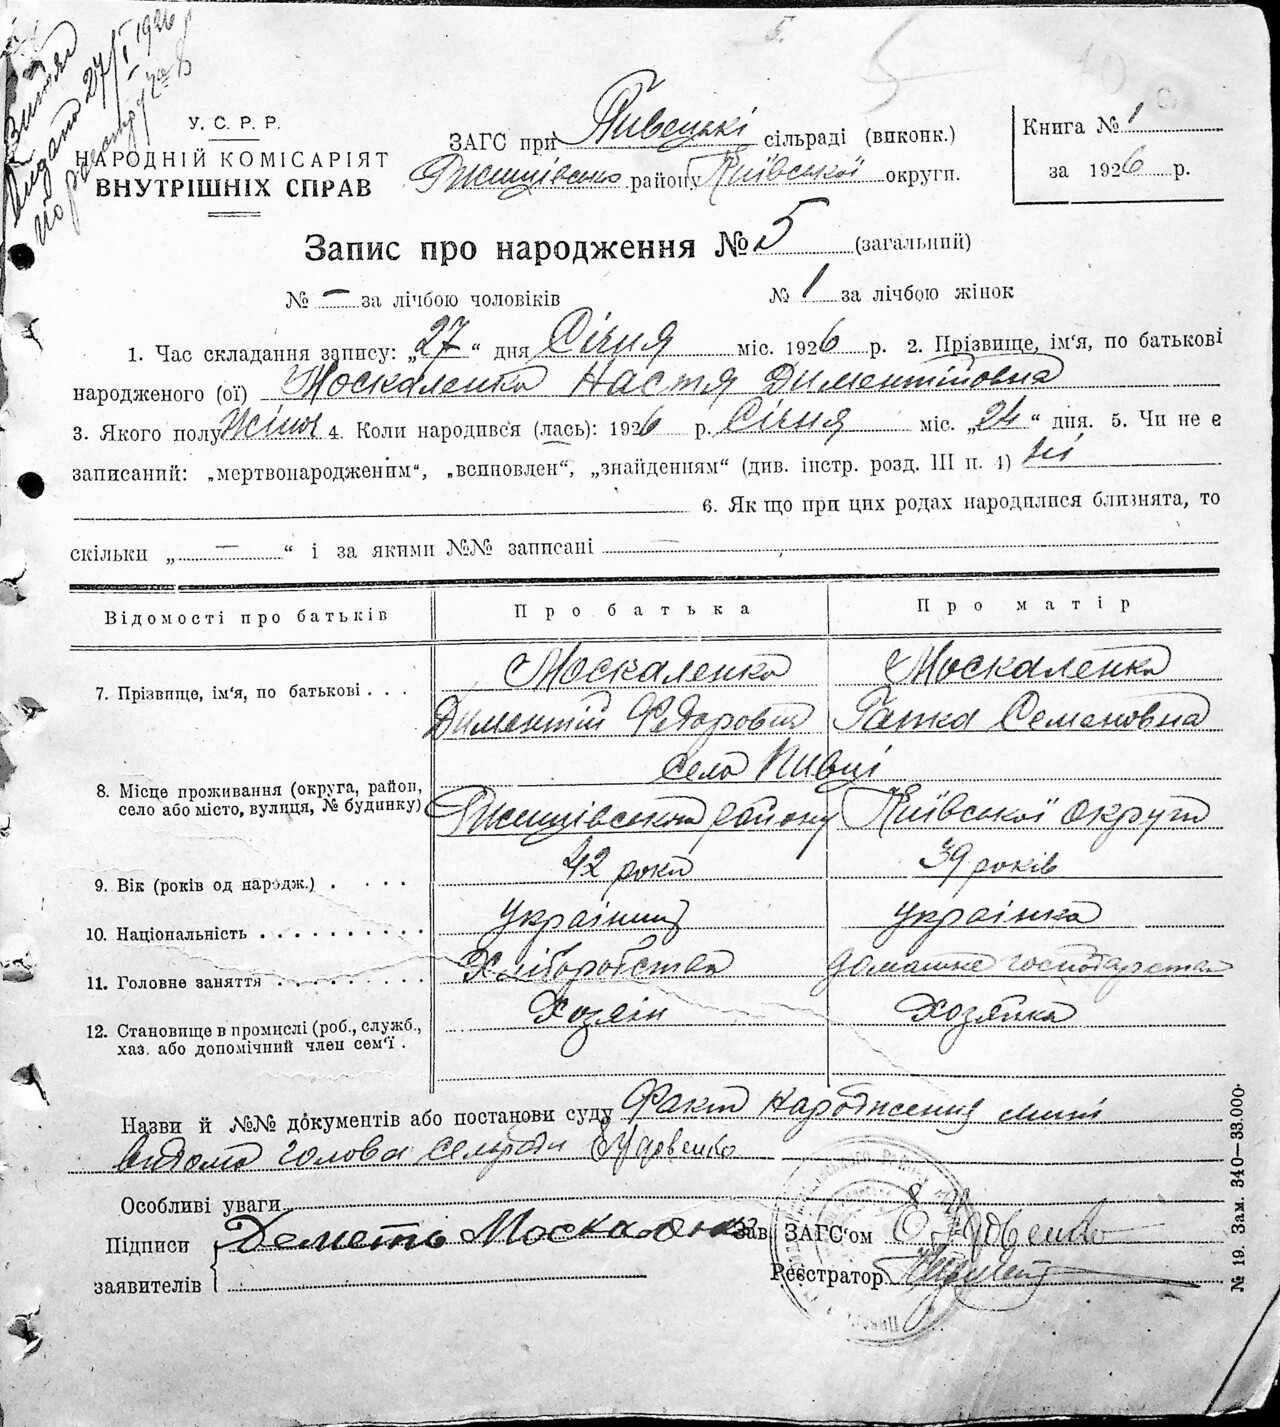 Витяг
Видано 27/I 1926 р
по реєстру за №
5.
У. С. Р. Р.
НАРОДНІЙ КОМІСАРІЯТ
ВНУТРІШНІХ СПРАВ
ЗАГС при Пивецькі сільраді (виконк.)
Ржищівсько району Київської округи.
Книга № 1
за 1926 р.
Запис про народження № 5 (загальний)
№ – за лічбою чоловіків № 1 за лічбою жінок
1. Час складання запису: „27“ дня Січня міс. 1926 р. 2. Прізвище, ім'я, по батькові
народженого (ої) Москаленко Настя Диментійовна
3. Якого полу Жіноч 4. Коли народився (лась): 1926 р. Січня міс. „24“ дня. 5. Чи не є
записаний: „мертвонародженим“, „всиновлен“, „знайденням“ (див. інстр. розд. III п. 4) Ні
6. Як що при цих родах народилися близнята, то
скільки „ — “ і за якими №№ записані —
Відомості про батьків Про батька Про матір
7. Прізвище, ім'я, по батькові . . . Москаленко Москаленко
Диментій Федорович Ганка Семеновна
село Пивці
8. Місце проживання (округа, район,
село або місто, вулиця, № будинку) Ржищівського району Київської округи
9. Вік (років од народж.) . . . . 42 роки 39 років
10. Національність . . . . . . . . . . Українець Українка
11. Головне заняття . . . . . . . . . Хліборобство домашнє господарство
12. Становище в промислі (роб., служб.,
хаз. або допомічний член сем'ї . Хозяін Хозяйка
Назви й №№ документів або постанови суду Факт народження мині
відомо голова сельради Вдовенко
Особливі уваги
Підписи
заявителів Деметь Москаленко
Зав. ЗАГС'ом Вдовенко
Реєстратор
№ 19. Зам. 340—33.000.